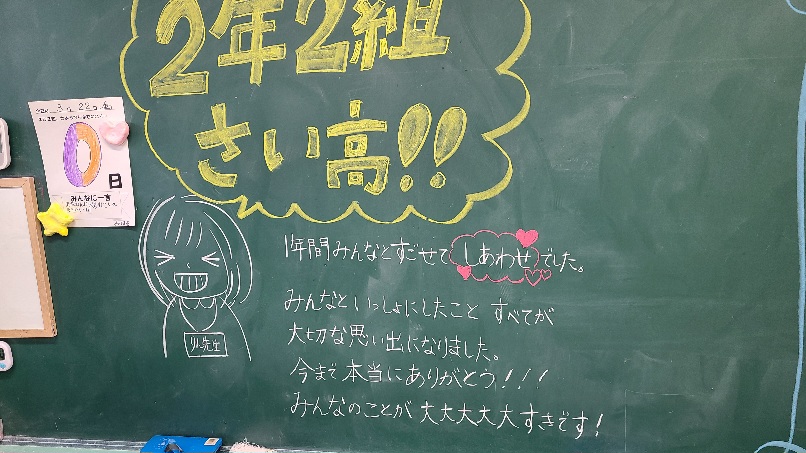 2年2組
さい高!!
3月22日
0
日
みんなに一言
1年間みんなとすごせて しあわせ でした。
みんなといっしょにしたこと すべてが
大切な思い出になりました。
今まで本当にありがとう!!!
みんなのことが 大大大大大すきです!
先生